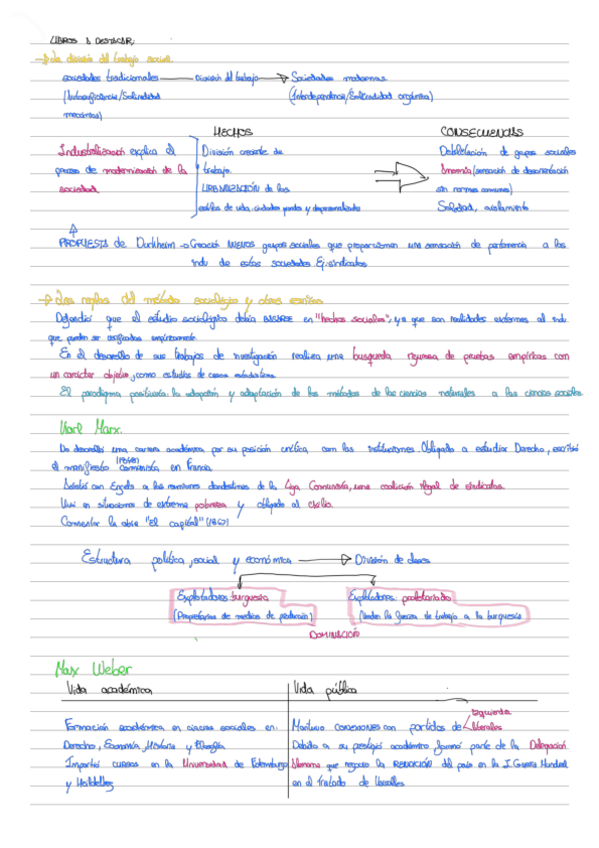 LIBROS A DESTACAR:
→ La división del trabajo social.
sociedades tradicionales → División del trabajo → Sociedades modernas
(Autosuficiencia/Solidaridad mecánica) (Interdependencia/Solidaridad orgánica)
HECHOS CONSECUENCIAS
Industrialización explica el División creciente de Debilitación de grupos sociales
proceso de modernización de la trabajo. Anomia (sensación de desorientación
sociedad URBANIZACIÓN de los sin normas comunes)
estilos de vida, ciudades grandes y despersonalizadas Soledad, aislamiento
PROPUESTA de Durkheim → Creación NUEVOS grupos sociales que proporcionen una sensación de pertenencia a los
indv de estas sociedades. Ej: sindicatos
→ Las reglas del método sociológico y otros escritos
Defendió que el estudio sociológico debía BASARSE en "hechos sociales", ya que son realidades externas al indv.
que pueden ser analizadas empíricamente.
En el desarrollo de sus trabajos de investigación realiza una busqueda rigurosa de pruebas empíricas con
un carácter objetivo, como estudios de
El paradigma positivista: la adopción y adaptación de los métodos de las ciencias naturales a las ciencias sociales.
Karl Marx.
No desarrolló una carrera académica por su posición crítica con las instituciones. Obligado a estudiar Derecho, escribió
el manifiesto comunista (1848) en Francia.
Asistió con Engels a las reuniones clandestinas de la Liga Comunista, una coalición ilegal de sindicatos.
Vivió en situaciones de extrema pobreza y obligado al exilio.
Comentar la obra "El capital" (1867)
Estructura política, social y económica → División de clases
Explotadores: burguesía Explotados: proletariado
(Propietarios de medios de producción) (Venden la fuerza de trabajo a la burguesía
DOMINACIÓN
Max Weber
Vida académica Vida pública
Izquierda
Formación académica en ciencias sociales en: Mantuvo CONEXIONES con partidos de liberales
Derecho, Economía, Historia y Filosofía Debido a su prestigio académico formó parte de la Delegación
Impartió cursos en la Universidad de Alemana que negoció la RENDICIÓN del país en la I. Guerra Mundial
y en el tratado de Versalles